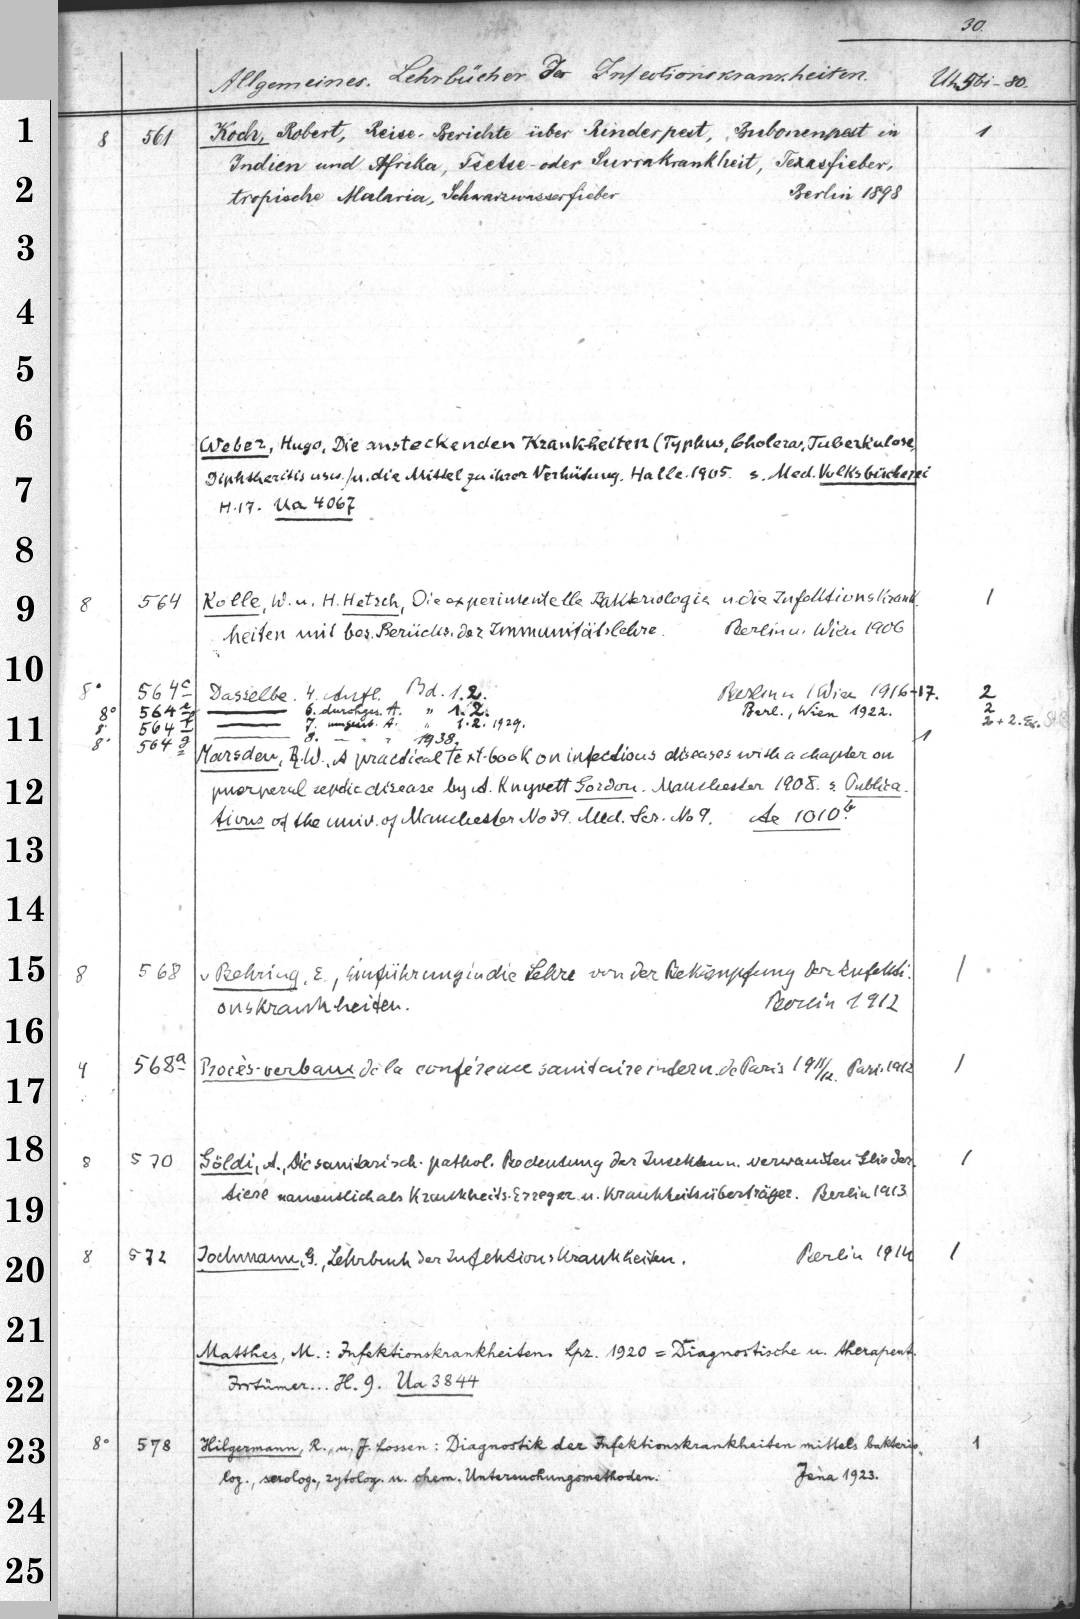 30.
Allgemeines. Lehrbücher der Infectionskrankheiten. Uh 561-80.
1 8 561 Koch, Robert, Reise-Berichte über Rinderpest, Bubonenpest in 1
Indien und Afrika, Tsetse- oder Surrakrankheit, Texasfieber,
2 tropische Malaria, Schwarzwasserfieber Berlin 1898
3
4
5
6 Weber, Hugo, Die ansteckenden Krankheiten (Typhus, Cholera, Tuberkulose,
7 Diphtheritis usw.) u. die Mittel zu ihrer Verhütung. Halle. 1905. s. Med. Volksbücherei
H. 17. Ua 4067
8
9 8 564 Kolle, W. u. H. Hetsch, Die experimentelle Bakteriologie u. die Infektionskrank 1
heiten mit bes. Berücks. der Immunitätslehre. Berlin u. Wien 1906
10
8° 564c Dasselbe. 4. Aufl. Bd. 1. 2. Berlin u. Wien 1916-17. 2
8° 564 6. durchges. A. " 1. 2. Berl., Wien 1922. 2
11 8 564f 7. A. " 1. 2. 1929. 2 + 2. Ex.
8° 564g 8. " " 1938. 1
Marsden, R. W., A practical text-book on infectious diseases with a chapter on
12 puerperal septic disease by A. Knyvett Gordon. Manchester 1908. s. Publica-
tions of the univ. of Manchester No 39. Med. Ser. No 9. Ae 1010b.
13
14
15 8 568 v Behring, E., Einführung in die Lehre von der Bekämpfung der Infekti- 1
onskrankheiten. Berlin 1912
16
17 4 568a Procès-verbaux de la conférence sanitaire intern. de Paris 1911/12. Paris 1912 1
18 8 570 Göldi, A., Die sanitarisch-pathol. Bedeutung der Insekten u. verwandten Glieder- 1
19 tiere namentlich als Krankheits-Erreger u. Krankheitsüberträger. Berlin 1913
20 8 572 Jochmann, G., Lehrbuch der Infektionskrankheiten. Berlin 1914 1
21
Matthes, M.: Infektionskrankheiten. Lpz. 1920 = Diagnostische u. therapeut.
22 Irrtümer... H. 9. Ua 3844
23 8° 578 Hilgermann, R., u. J. Lossen: Diagnostik der Infektionskrankheiten mittels bakterio- 1
log., serolog., zytolog. u. chem. Untersuchungsmethoden. Jena 1923.
24
25